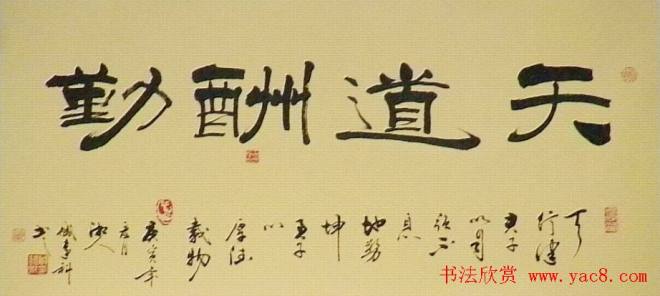 天道酬勤
天
行健
君子
以自
强不
息
地势
坤
君子
以
厚德
载物
庚寅年
书
书法欣赏
www.yac8.com